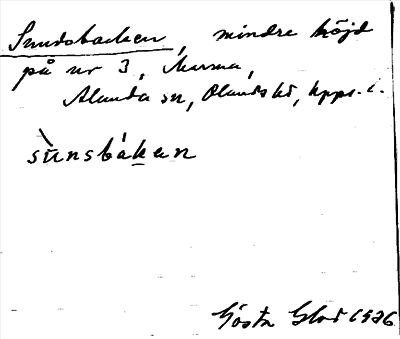 Sundsbacken, mindre höjd
på nr 3, Marma,
Alunda sn, Olands hd, Upps. l.
sùnsbákan
Gösta